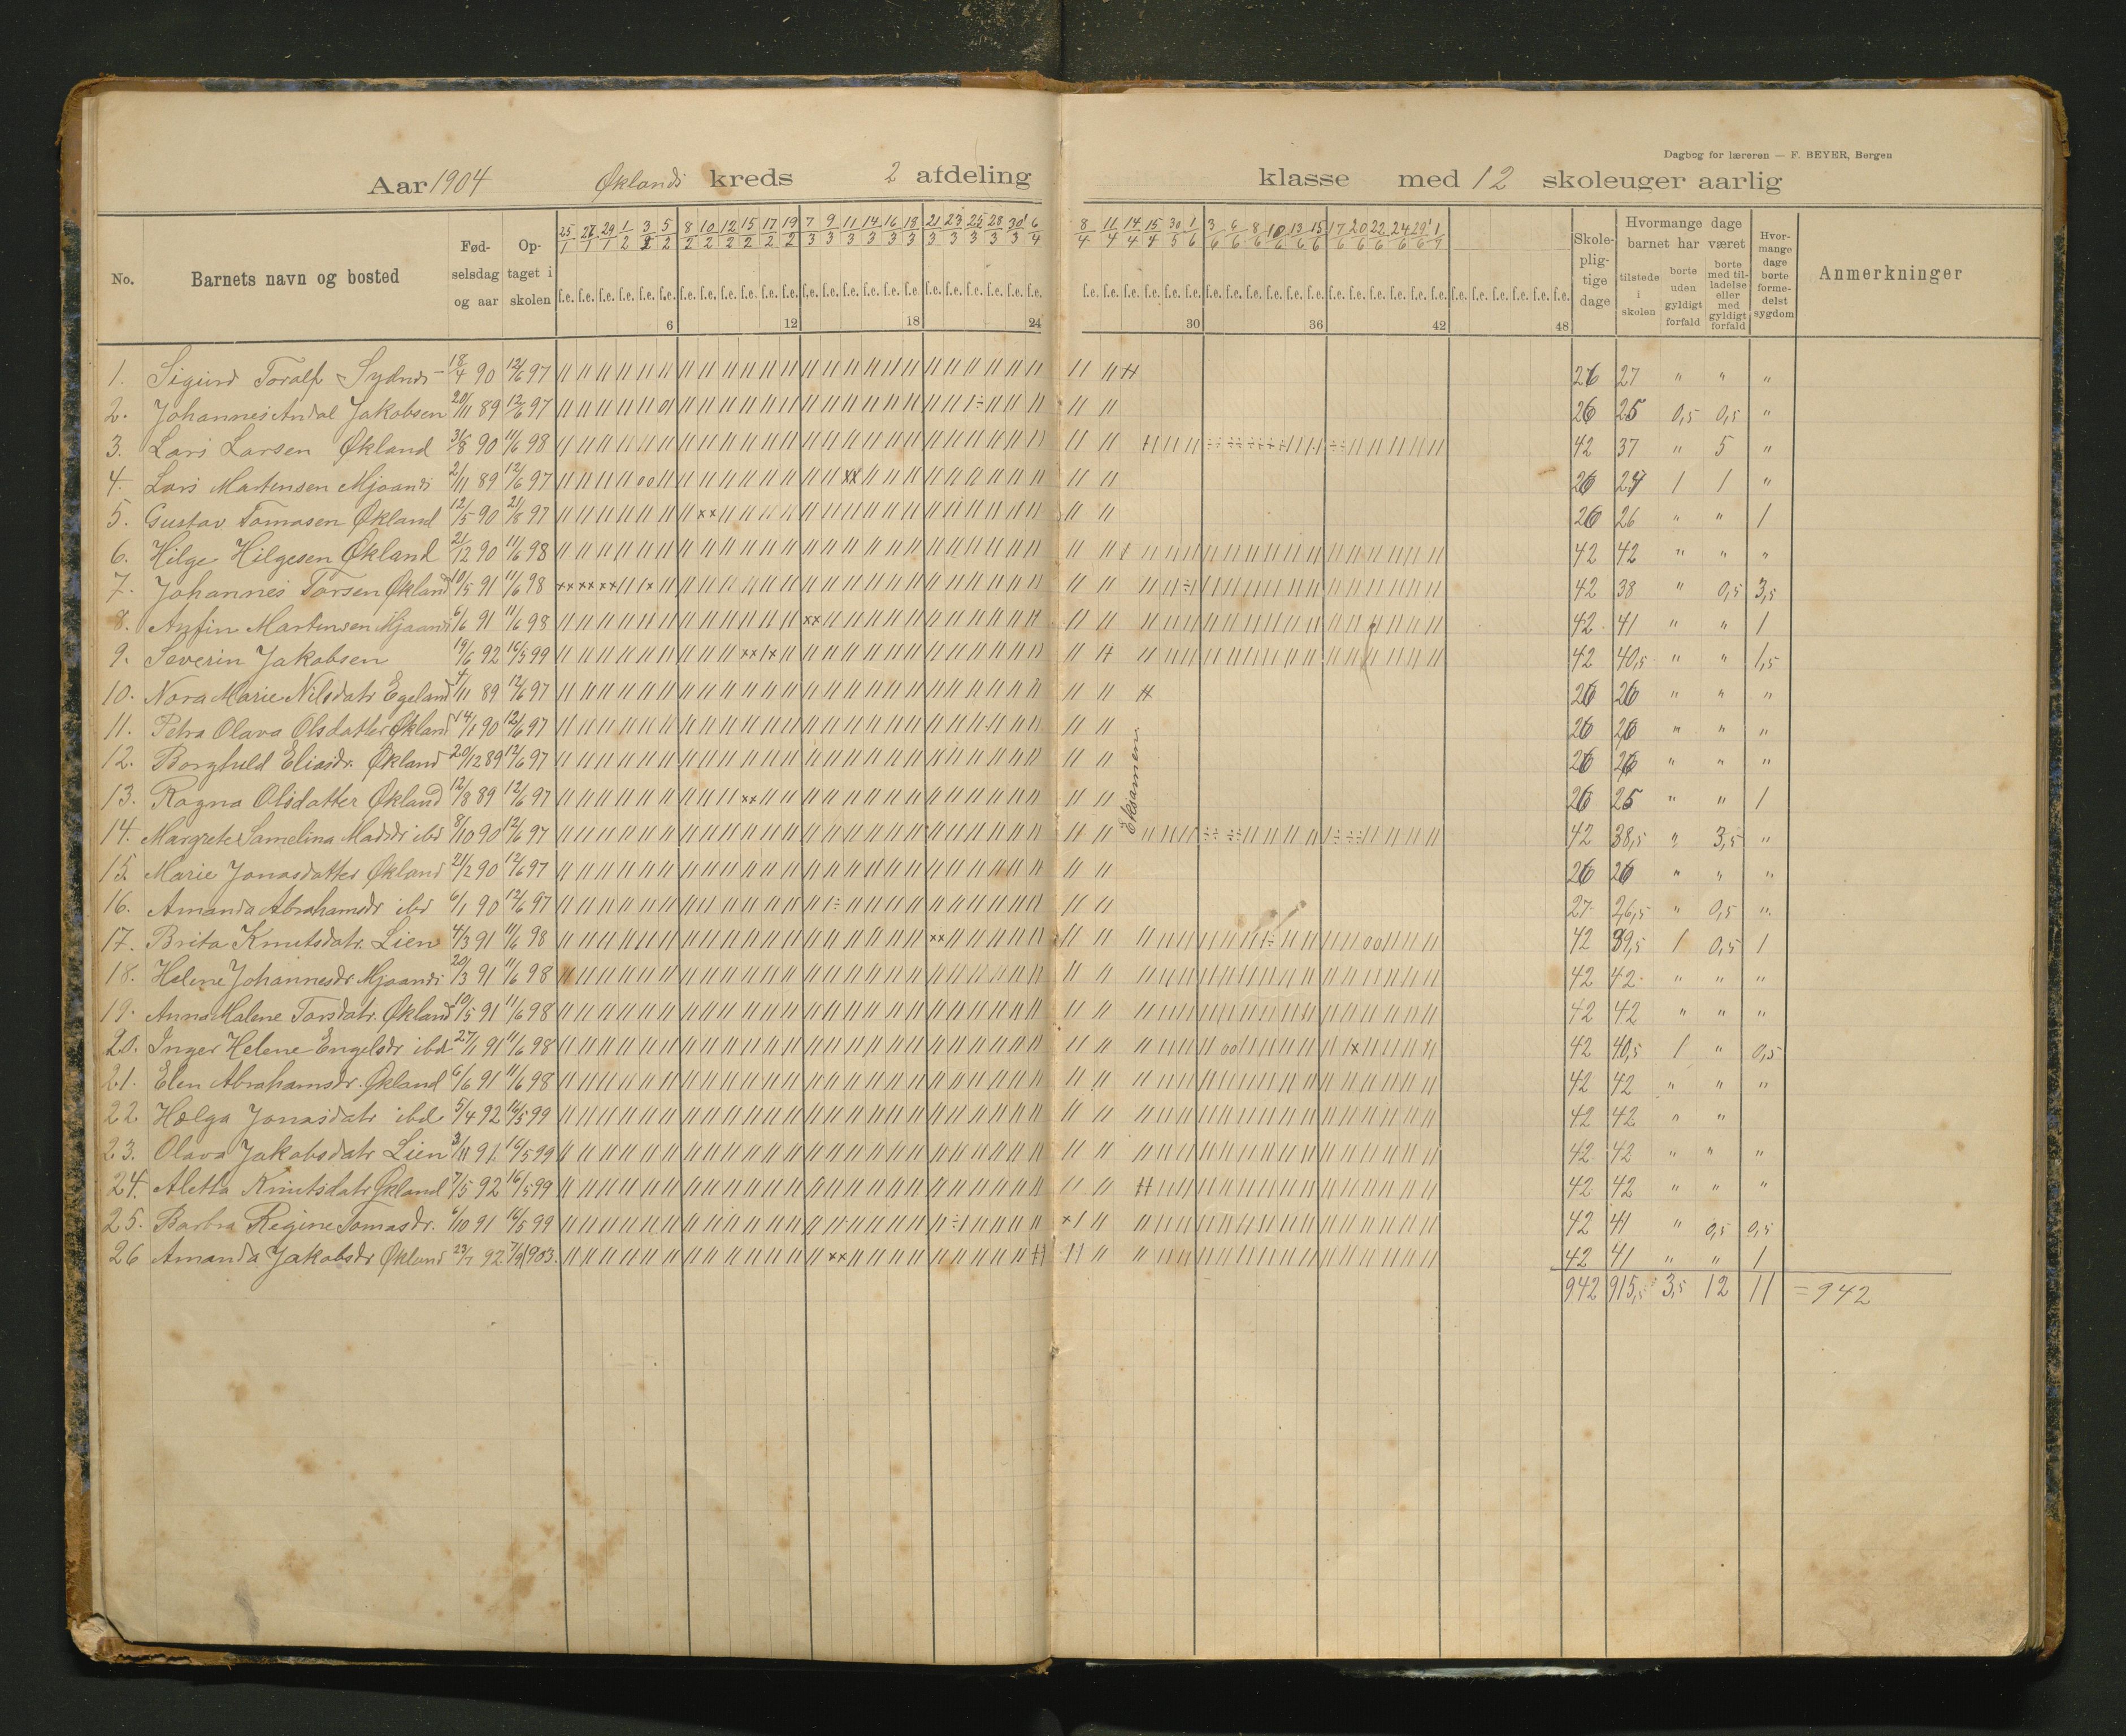 Dagbog for læreren — F. BEYER, Bergen
Aar 1904 Øklands kreds 2 afdeling klasse med 12 skoleuger aarlig
No. Barnets navn og bosted Fødselsdag og aar Optaget i skolen
25/1 27/1 29/1 1/2 3/2 5/2 8/2 10/2 12/2 15/2 17/2 19/2 7/3 9/3 11/3 14/3 16/3 18/3 21/3 23/3 25/3 28/3 30/3 6/4 8/4 11/4 14/4 15/4 30/5 1/6 3/6 6/6 8/6 10/6 13/6 15/6 17/6 20/6 22/6 24/6 29/6
f.e. f.e. f.e. f.e. f.e. f.e. f.e. f.e. f.e. f.e. f.e. f.e. f.e. f.e. f.e. f.e. f.e. f.e. f.e. f.e. f.e. f.e. f.e. f.e. f.e. f.e. f.e. f.e. f.e. f.e. f.e. f.e. f.e. f.e. f.e. f.e. f.e. f.e. f.e. f.e. f.e. f.e. f.e. f.e. f.e. f.e. f.e. f.e.
6 12 18 24 30 36 42 48
Skolepligtige dage
Hvormange dage barnet har været
tilstede i skolen
borte uden gyldigt forfald
borte med tilladelse eller med gyldigt forfald
Hvormange dage borte formedelst sygdom
Anmerkninger
1. Sigurd Toralf 18/4 90 12/6 97 27 " " "
2. Johannes Andal Jakobsen 20/11 89 12/6 97 26 25 0,5 0,5 "
3. Lars Larsen Økland 31/8 90 11/6 98 42 37 " 5 "
4. Lars Martensen Mjoanes 2/11 89 12/6 97 26 24 1 1 "
5. Gustav Tomasen Økland 12/5 90 21/8 97 26 26 " " 1
6. Hilge Hilgesen Økland 21/12 90 11/6 98 42 42 " " "
7. Johannes Torsen Økland 10/5 91 11/6 98 42 38 " 0,5 3,5
8. Anfin Martensen Mjoanes 6/6 91 11/6 98 42 41 " " 1
9. Severin Jakobsen 19/6 92 16/5 99 42 40,5 " " 1,5
10. Nora Marie Nilsdatr Egeland 4/11 89 12/6 97 26 26 " " "
11. Petra Olava Olsdatter Økland 14/1 90 12/6 97 26 26 " " "
12. Borghild Eliasdr. Økland 20/12 89 12/6 97 26 26 " " "
13. Ragna Olsdatter Økland 12/8 89 12/6 97 26 25 " " 1
Eksamen.
14. Margrete Samelina Madsdr ibd 8/10 90 12/6 97 42 38,5 " 3,5 "
15. Marie Jonasdatter Økland 21/2 90 12/6 97 26 26 " " "
16. Amanda Abrahamsdr ibd 6/1 90 12/6 97 27 26,5 " 0,5 "
17. Brita Knutsdatr. Lien 4/3 91 11/6 98 42 39,5 1 0,5 1
18. Helene Johannesdr. Mjoanes 20/3 91 11/6 98 42 42 " " "
19. Anna Malene Torsdatr. Økland 10/5 91 11/6 98 42 42 " " "
20. Inger Helene Engelsdr ibd 27/1 91 11/6 98 42 40,5 1 " 0,5
21. Elen Abrahamsdr. Økland 6/6 91 11/6 98 42 42 " " "
22. Hælga Jonasdatr ibd 5/4 92 16/5 99 42 42 " "
23. Olava Jakobsdatr Lien 3/11 91 16/5 99 42 42 " " "
24. Aletta Knutsdatr Økland 7/5 92 16/5 99 42 42 " " "
25. Barbra Regine Tomasdr. 6/10 91 16/5 99 42 41 " 0,5 0,5
26 Amanda Jakobsdr Økland 23/7 92 7/9 1903. 42 41 " " 1
942 915,5 3,5 12 11 = 942